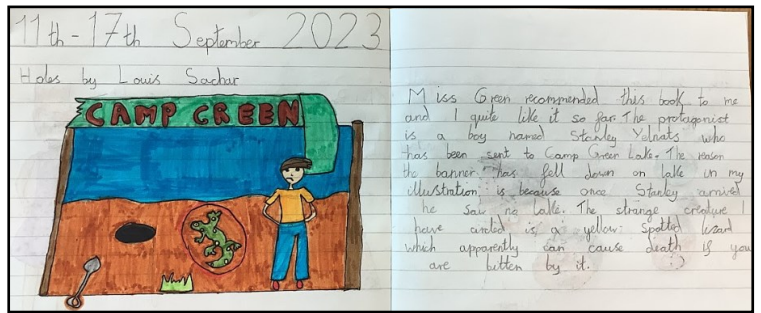 11th-17th September 2023
Holes by Louis Sachar
CAMP GREEN
Miss Green recommended this book to me
and I quite like it so far. The protagonist
is a boy named Stanley Yelnats who
has been sent to Camp Green Lake. The reason
the banner has fell down on lake in my
illustration is because once Stanley arrived
he saw no lake. The strange creature I
have circled is a yellow spotted lizard
which apparently can cause death if you
are bitten by it. :)